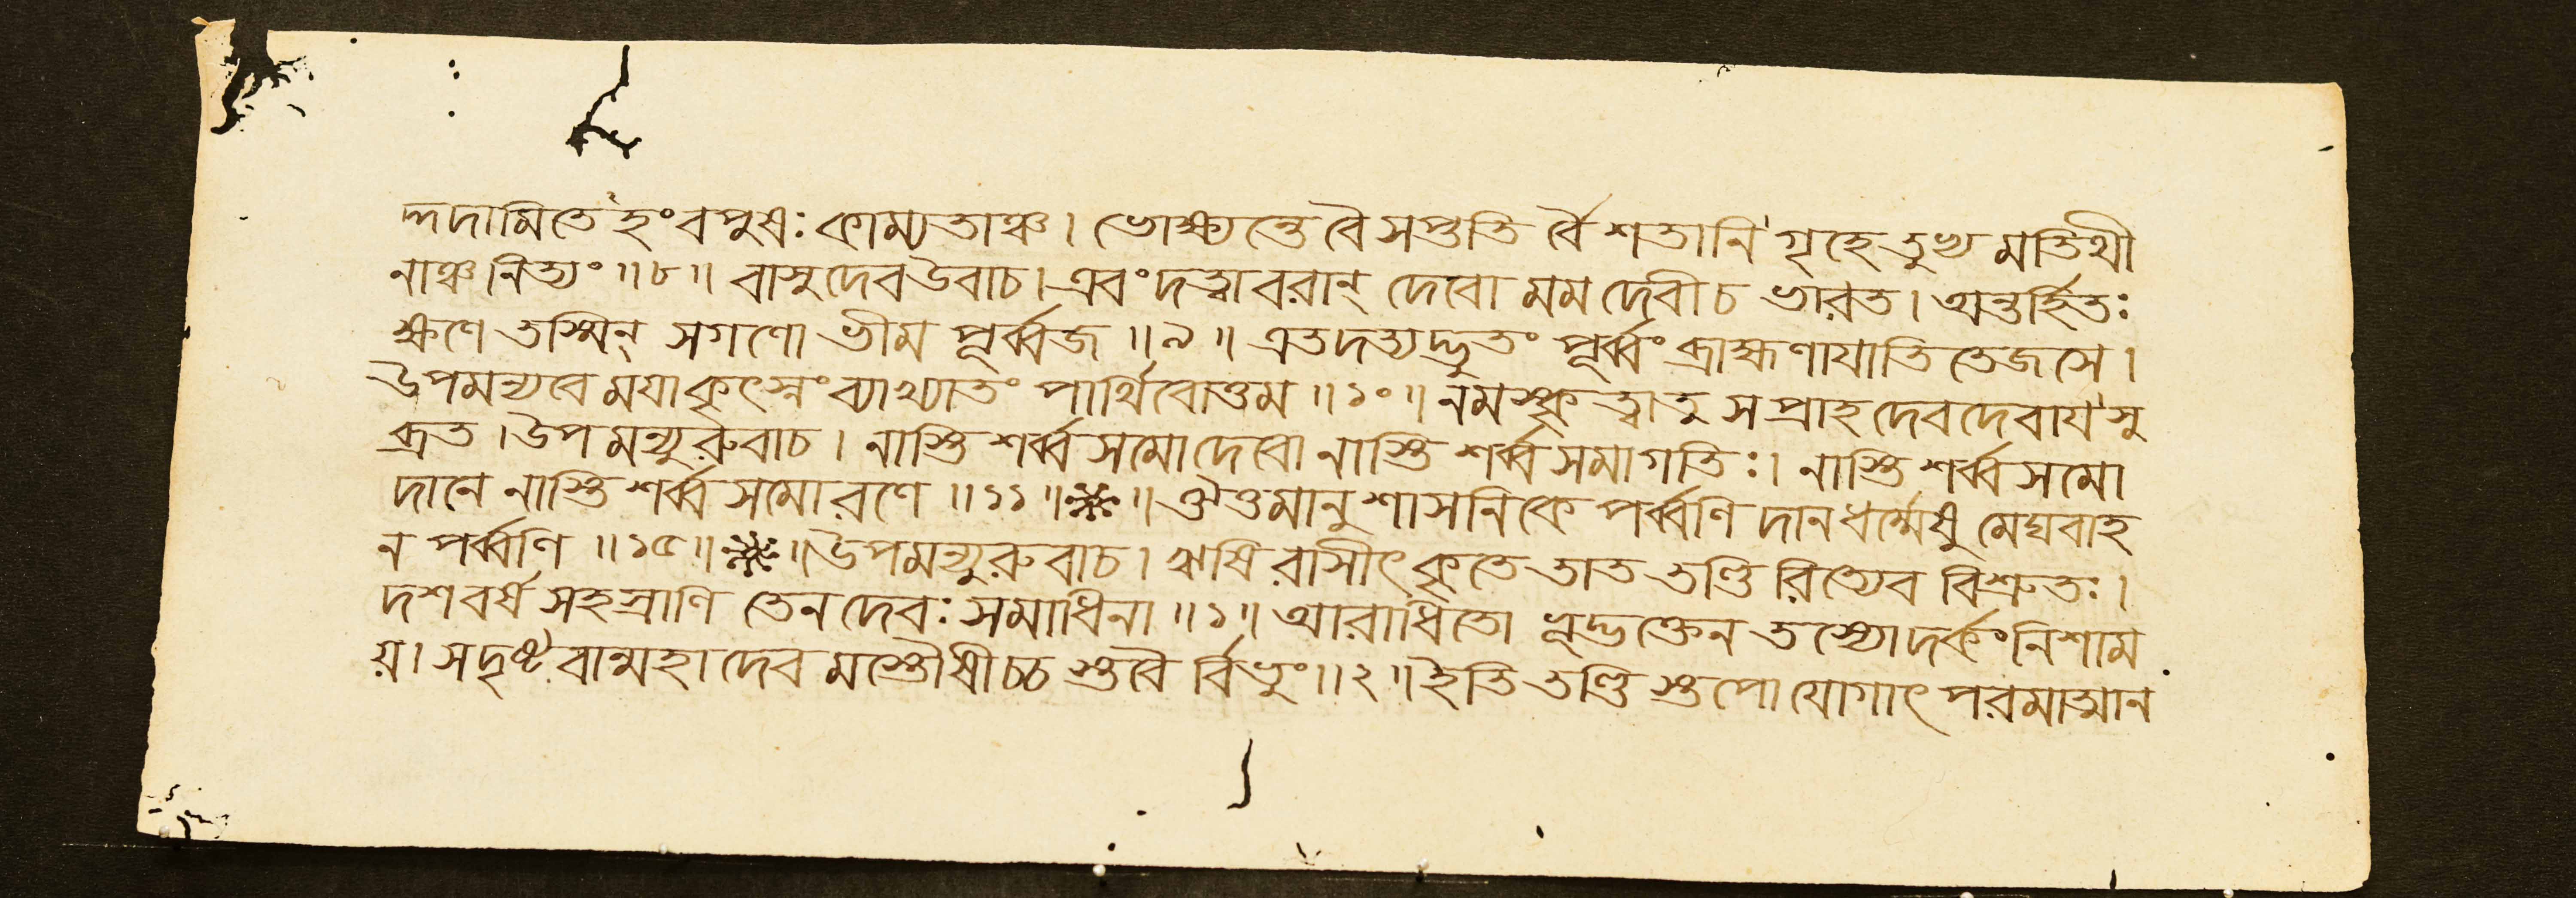 দ্দদামিতেঽহং বপুষঃ কাম্যতাঞ্চ। ভোক্ষ্যন্তে বৈ সপ্ততি র্বৈ শতানি গৃহে তুভ্য মতিথী
নাঞ্চ নিত্যং॥৮॥ বাসুদেব উবাচ। এবং দত্ত্বা বরান্ দেবো মম দেবী চ ভারত। অন্তর্হিতঃ
ক্ষণে তস্মিন্ সগণো ভীম পূর্ব্বজ॥৯॥ এতদত্যদ্ভুতং পূর্ব্বং ব্রাহ্মণাযাতি তেজসে।
উপমন্যবে মযা কৃৎস্নং ব্যাখ্যাতং পার্থিবোত্তম॥১০॥ নমস্কৃত্বা তু স প্রাহ দেবদেবায সু
ব্রত। উপমন্যুরুবাচ। নাস্তি শর্ব্ব সমো দেবো নাস্তি শর্ব্ব সমা গতিঃ। নাস্তি শর্ব্ব সমো
দানে নাস্তি শর্ব্ব সমো রণে॥১১॥❋॥ঔত্তমানুশাসনিকে পর্ব্বণি দানধর্ম্মেষু মেঘবাহ
ন পর্ব্বণি॥১৫॥❋॥উপমন্যুরুবাচ। ঋষি রাসীৎ কৃতে তাত তণ্ডি রিত্যেব বিশ্রুতঃ।
দশ বর্ষ সহস্রাণি তেন দেবঃ সমাধিনা॥১॥ আরাধিতো ভূদ্ভক্তেন তস্যোদর্কং নিশাম
য়। স দৃষ্টবান্মহাদেব মস্তৌষীচ্চ স্তবৈ র্বিভুং॥২॥ ইতি তণ্ডি স্তপোযোগাৎ পরমাত্মান